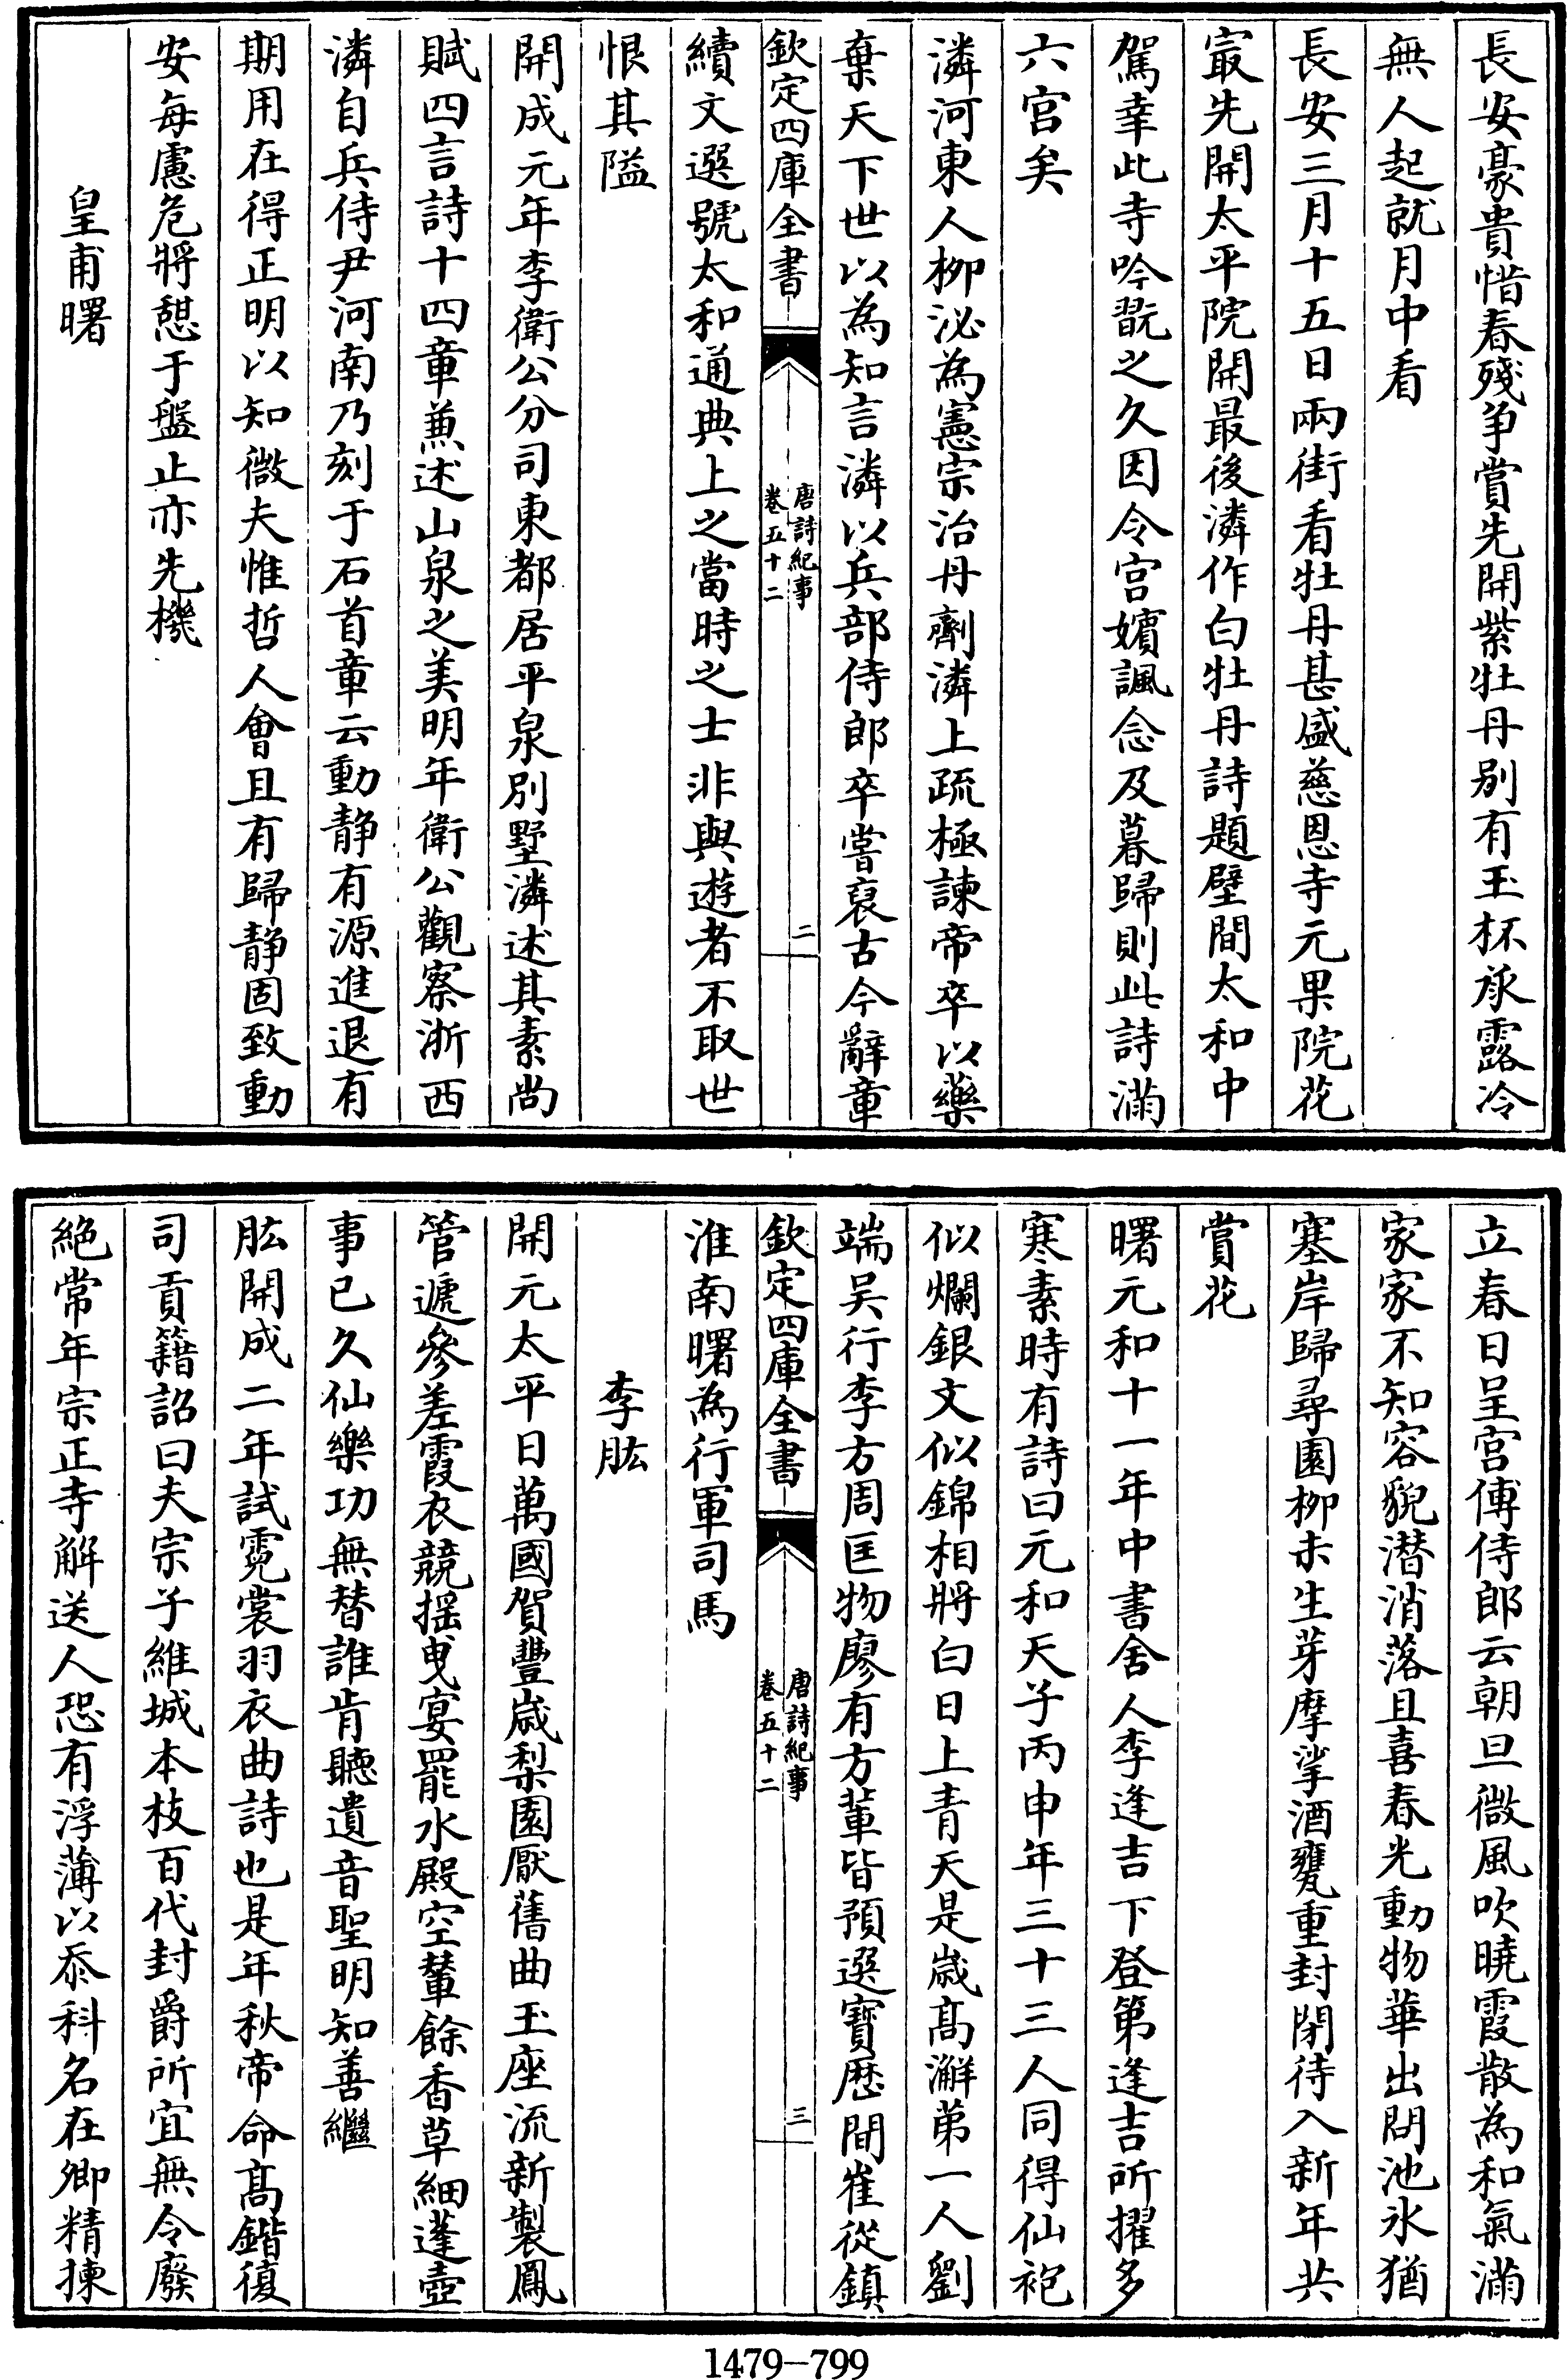 長安豪貴惜春殘爭賞先開紫牡丹别有玉杯承露冷
無人起就月中看
長安三月十五日兩街看牡丹甚盛慈恩寺元果院花
㝡先開太平院開最後潾作白牡丹詩題壁間太和中
駕幸此寺吟翫之久因令宫嬪諷念及暮歸則此詩滿
六宫矣
潾河東人柳泌為憲宗治丹劑潾上疏極諫帝卒以藥
棄天下世以為知言潾以兵部侍郎卒嘗裒古今辭章
欽定四庫全書
唐詩紀事
卷五十二
二
續文選號太和通典上之當時之士非與遊者不取世
恨其隘
開成元年李衛公分司東都居平泉別墅潾述其素尚
賦四言詩十四章兼述山泉之美明年衛公觀察浙西
潾自兵侍尹河南乃刻于石首章云動静有源進退有
期用在得正明以知微夫惟哲人會且有歸静固致動
安每慮危將憩于盤止亦先機
皇甫曙
立春日呈宫傅侍郎云朝旦微風吹曉霞散為和氣滿
家家不知容貌潛消落且喜春光動物華出問池氷猶
塞岸歸尋園柳未生芽摩挲酒甕重封閉待入新年共
賞花
曙元和十一年中書舍人李逢吉下登第逢吉所擢多
寒素時有詩曰元和天子丙申年三十三人同得仙袍
似爛銀文似錦相將白日上青天是歳髙澥第一人劉
端吴行李方周匡物廖有方輩皆預選寶歴間崔從鎮
欽定四庫全書
唐詩紀事
卷五十二
三
淮南曙為行軍司馬
李肱
開元太平日萬國賀豐歳梨園厭舊曲玉座流新製鳳
管遞參差霞衣競摇曳宴罷水殿空輦餘香草細蓬壺
事已久仙樂功無替誰肯聽遺音聖明知善繼
肱開成二年試霓裳羽衣曲詩也是年秋帝命髙鍇復
司貢籍詔曰夫宗子維城本枝百代封爵所宜無令廢
絶常年宗正寺解送人恐有浮薄以忝科名在卿精揀
1479-799